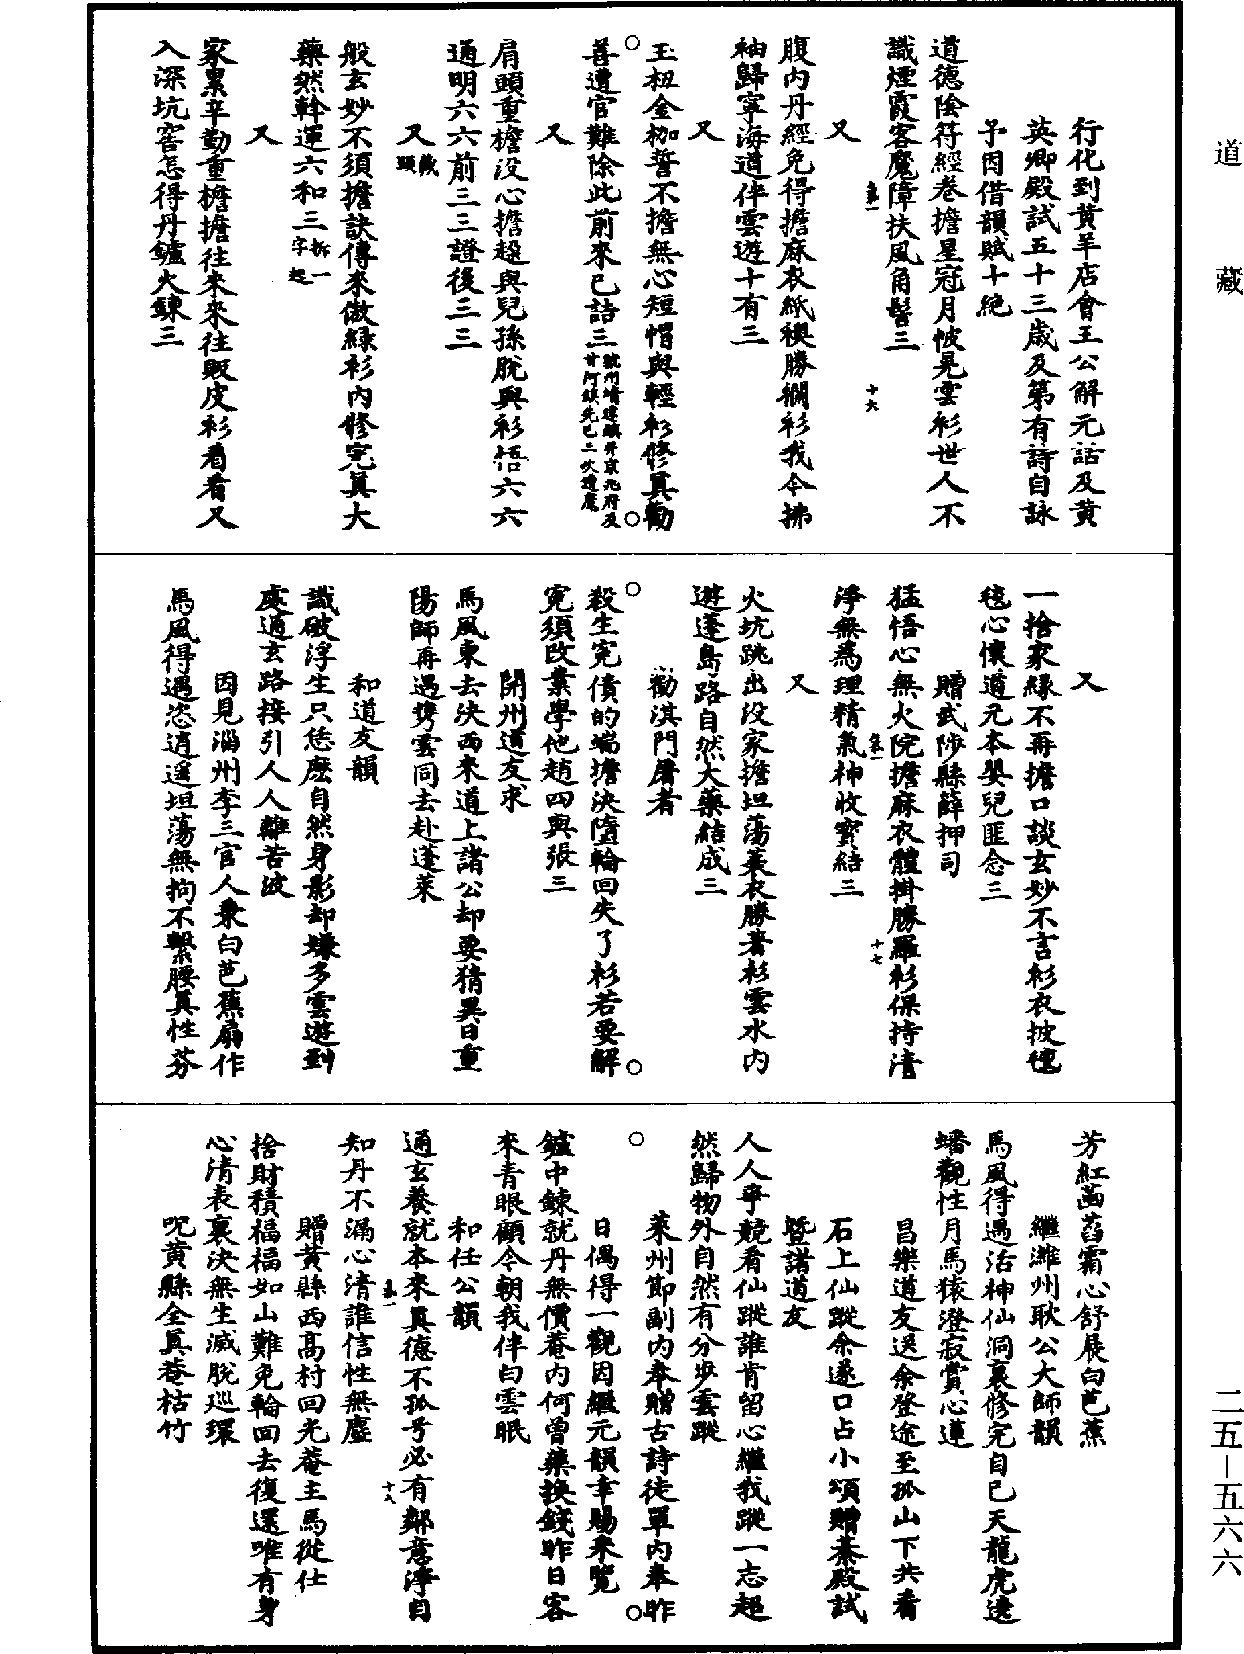 道藏
行化到黄羊店會王公解元話及黄
英卿殿試五十三歲及第有詩自詠
予因借韻賦十絕
道德陰符經卷擔星冠月帔晃雲衫世人不
識煙霞客魔障扶風角髻三
卷一
十六
又
腹內丹經免得擔麻衣紙襖勝襴衫我今拂
袖歸寧海道伴雲遊十有三
又
玉杻金枷誓不擔無心短帽與輕衫修真勸
善遭官難除此前來已詰三
虢州崤運鎮并京兆府及
甘河鎮先已三次遭魔
又
肩頭重擔没心擔趍與兒孫脫與衫悟六六
通明六六前三三證後三三
又
藏頭
般玄妙不須擔訣傳來傲緑衫內修完真大
藥然斡運六和三
拆一字起
又
家累辛勤重擔擔往來來往販皮衫看看又
入深坑窖怎得丹鑪火鍊三
又
一捨家緣不再擔口談玄妙不言衫衣披氊
毯心懷道元本嬰兒匪念三
贈武陟縣薛押司
猛悟心無火院擔麻衣體掛勝羅衫保持清
淨無為理精氣神收寳結三
卷一
十七
又
火坑跳出没家擔坦蕩蓑衣勝著衫雲水內
遊蓬島路自然大藥結成三
勸淇門屠者
殺生寃債的端擔決墮輪回失了衫若要解
寃須改業學他趙四與張三
開州道友求
馬風東去決西來道上諸公却要猜異日重
陽師再遇㩦雲同去赴蓬萊
和道友韻
識破浮生只恁麽自然身影却嫌多雲遊到
處通玄路接引人人離苦波
因見淄州李三官人乗白芭蕉扇作
馬風得遇恣逍遥坦蕩無拘不繫腰真性芬
芳紅菡萏霜心舒展白芭蕉
繼濰州耿公大師韻
馬風得遇活神仙洞裏修完自已天龍虎遶
蟠觀性月馬猿澄寂賞心蓮
昌樂道友送余登途至孤山下共看
石上仙蹤余遂口占小頌贈綦殿試
暨諸道友
人人爭競看仙蹤誰肯留心繼我蹤一志超
然歸物外自然有分步雲蹤
萊州節副內奉贈古詩徒單內奉昨
日偶得一觀因繼元韻幸賜來覽
鑪中鍊就丹無價菴內何曾藥換錢昨日客
來青眼顧今朝我伴白雲眠
和任公韻
通玄養就本來真德不孤兮必有鄰意淨自
卷一
十八
知丹不漏心清誰信性無塵
贈黄縣西髙村回光菴主馬從仕
捨財積福福如山難免輪回去復還唯有身
心清表裏決無生滅脫巡環
呪黄縣全真菴枯竹
二五—五六六